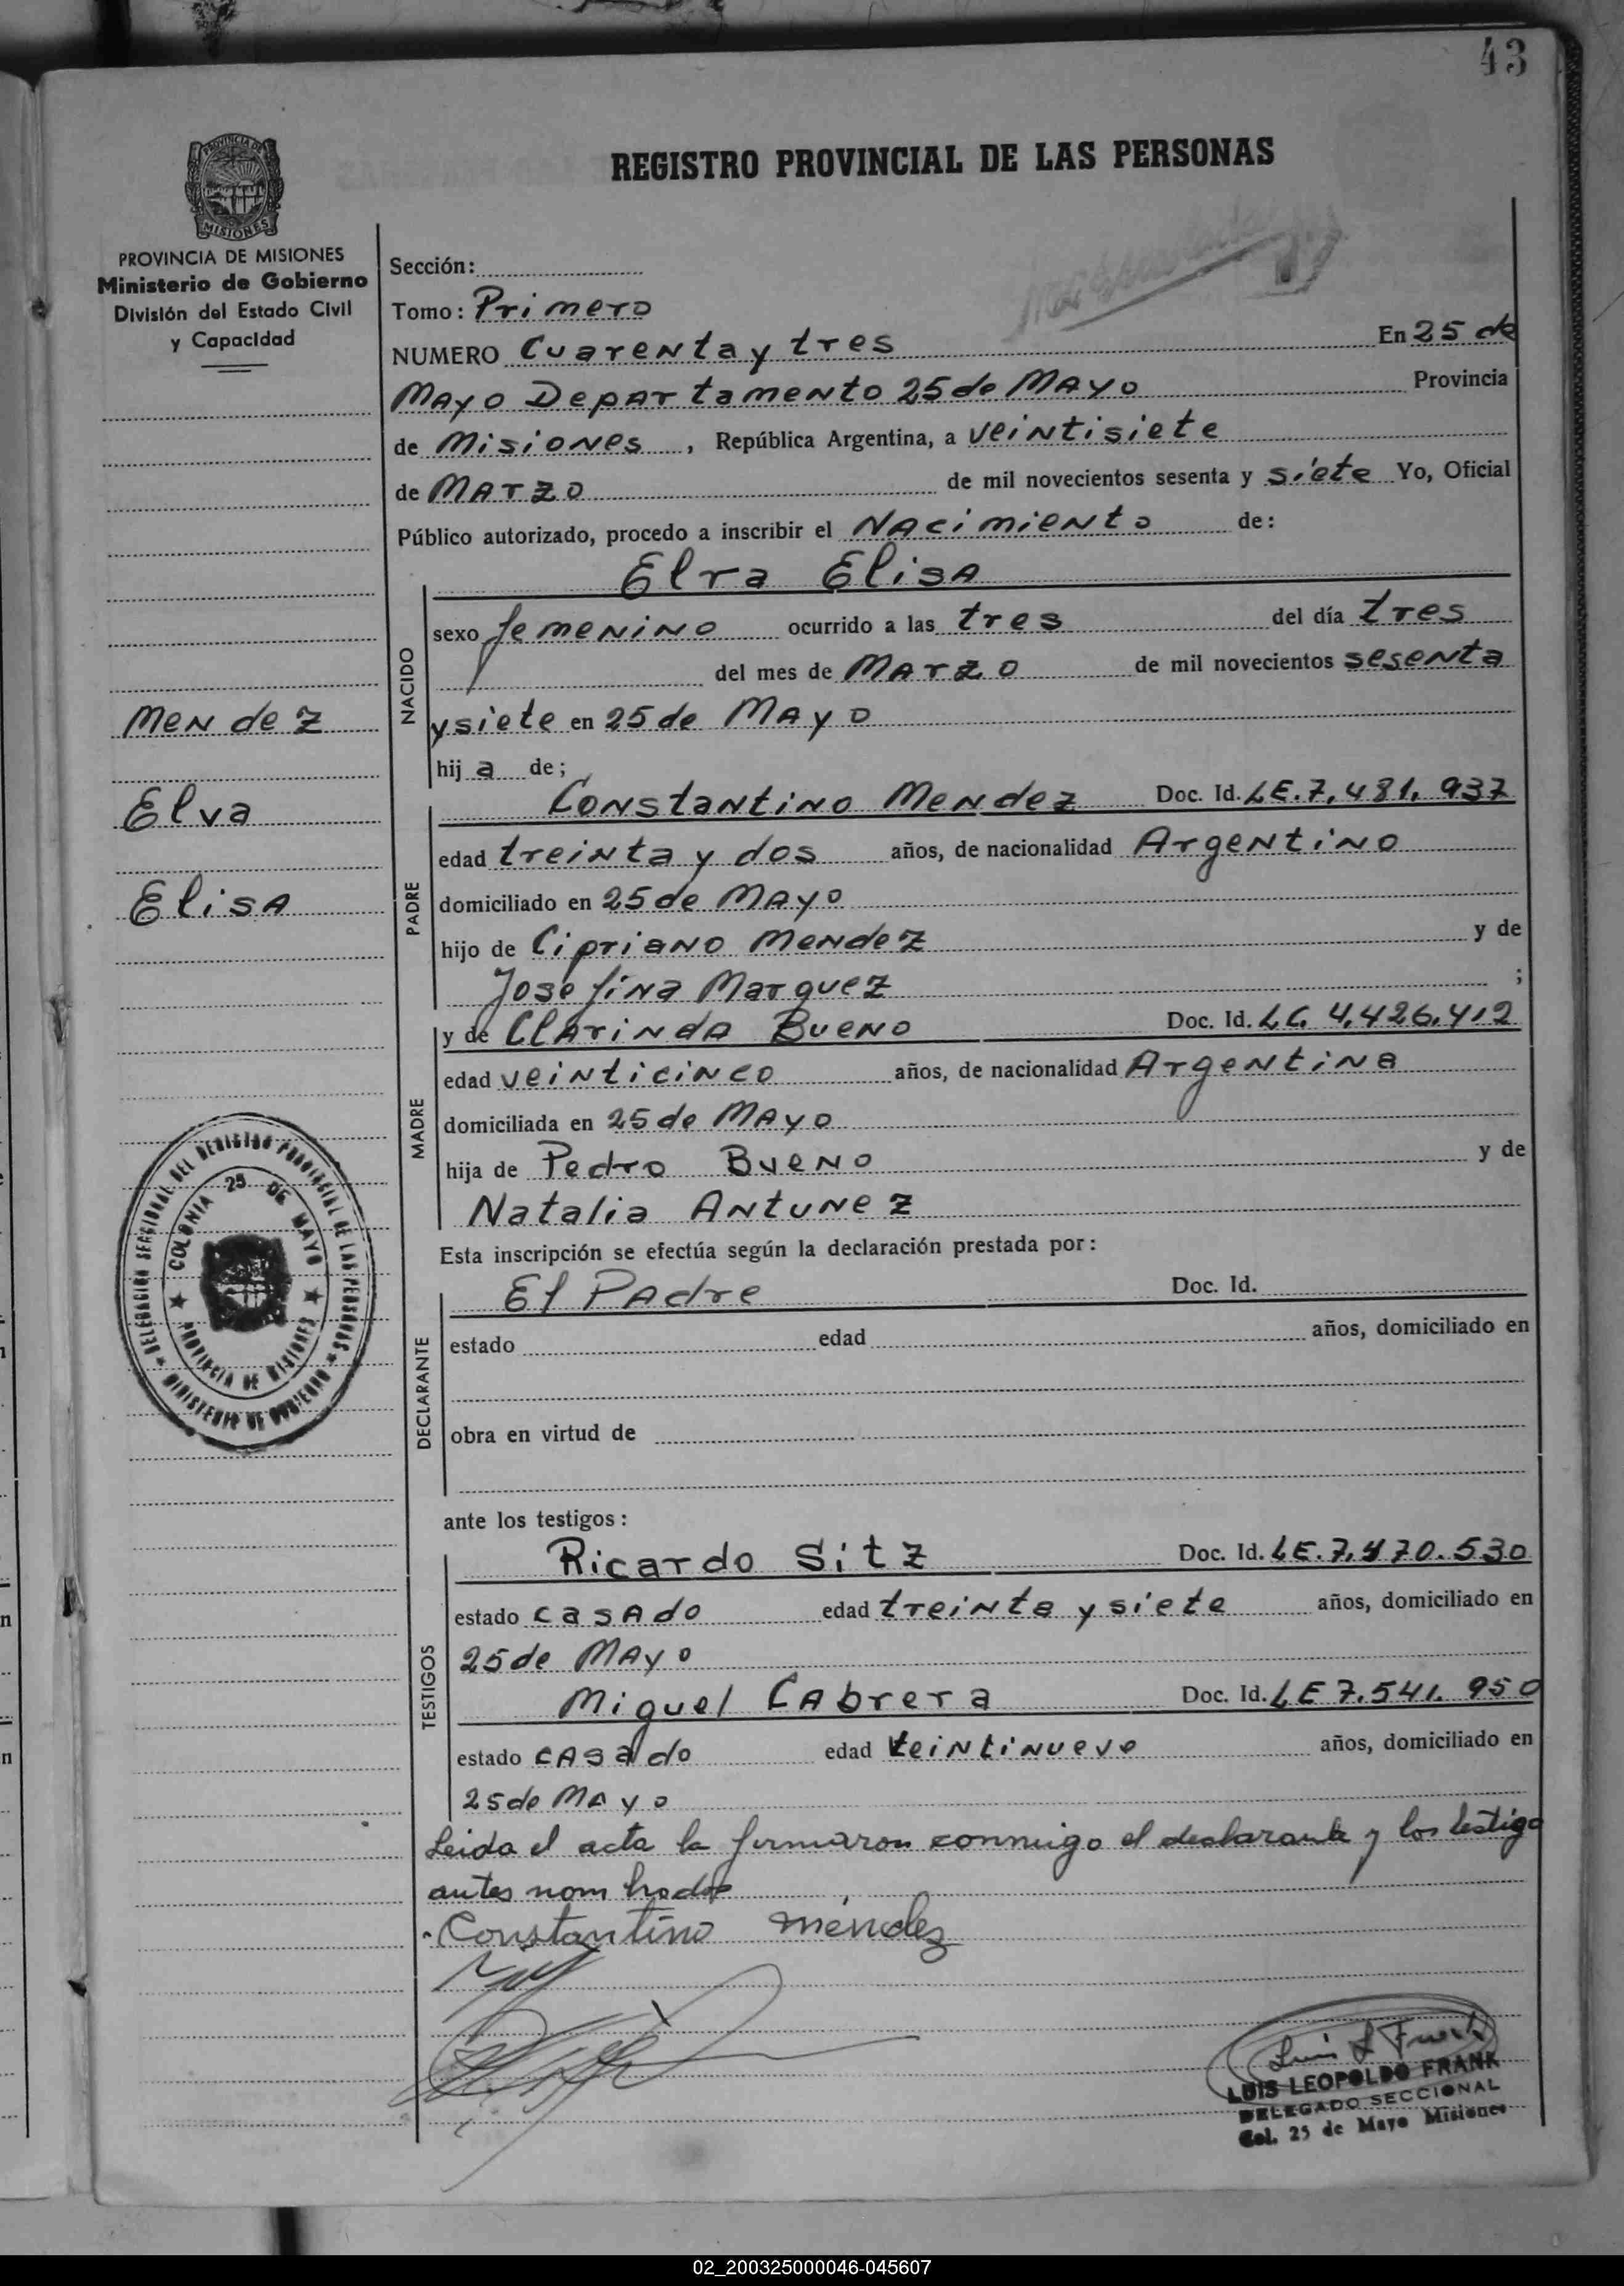 43
REGISTRO PROVINCIAL DE LAS PERSONAS
PROVINCIA DE
MISIONES
PROVINCIA DE MISIONES
Ministerio de Gobierno
División del Estado Civil
y Capacidad
Sección:
Tomo: Primero
NUMERO Cuarenta y tres En 25 de
Mayo Departamento 25 de Mayo Provincia
de Misiones, República Argentina, a veintisiete
de Marzo de mil novecientos sesenta y siete Yo, Oficial
Público autorizado, procedo a inscribir el Nacimiento de:
Elva Elisa
NACIDO
sexo femenino ocurrido a las tres del día tres
del mes de Marzo de mil novecientos sesenta
y siete en 25 de Mayo
hij a de;
Mendez
Elva
Elisa
PADRE
Constantino Mendez Doc. Id. LE. 7.481.937
edad treinta y dos años, de nacionalidad Argentino
domiciliado en 25 de Mayo
hijo de Cipriano Mendez y de
Josefina Marquez ;
MADRE
y de Clarinda Bueno Doc. Id. LC. 4.426.412
edad veinticinco años, de nacionalidad Argentina
domiciliada en 25 de Mayo
hija de Pedro Bueno y de
Natalia Antunez
DELEGACION SECCIONAL DEL REGISTRO PROVINCIAL DE LAS PERSONAS
MINISTERIO DE GOBIERNO
COLONIA 25 DE MAYO
PROVINCIA DE MISIONES
Esta inscripción se efectúa según la declaración prestada por:
DECLARANTE
El Padre Doc. Id.
estado edad años, domiciliado en
obra en virtud de
ante los testigos:
TESTIGOS
Ricardo Sitz Doc. Id. LE. 7.470.530
estado casado edad treinta y siete años, domiciliado en
25 de Mayo
Miguel Cabrera Doc. Id. LE 7.541.950
estado casado edad veintinueve años, domiciliado en
25 de Mayo
Leida el acta la firmaron conmigo el declarante y los testigo
antes nombrados
Constantino Méndez
Luis L Frank
LUIS LEOPOLDO FRANK
DELEGADO SECCIONAL
Col. 25 de Mayo Misiones
02_200325000046-045607